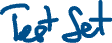 Test Set